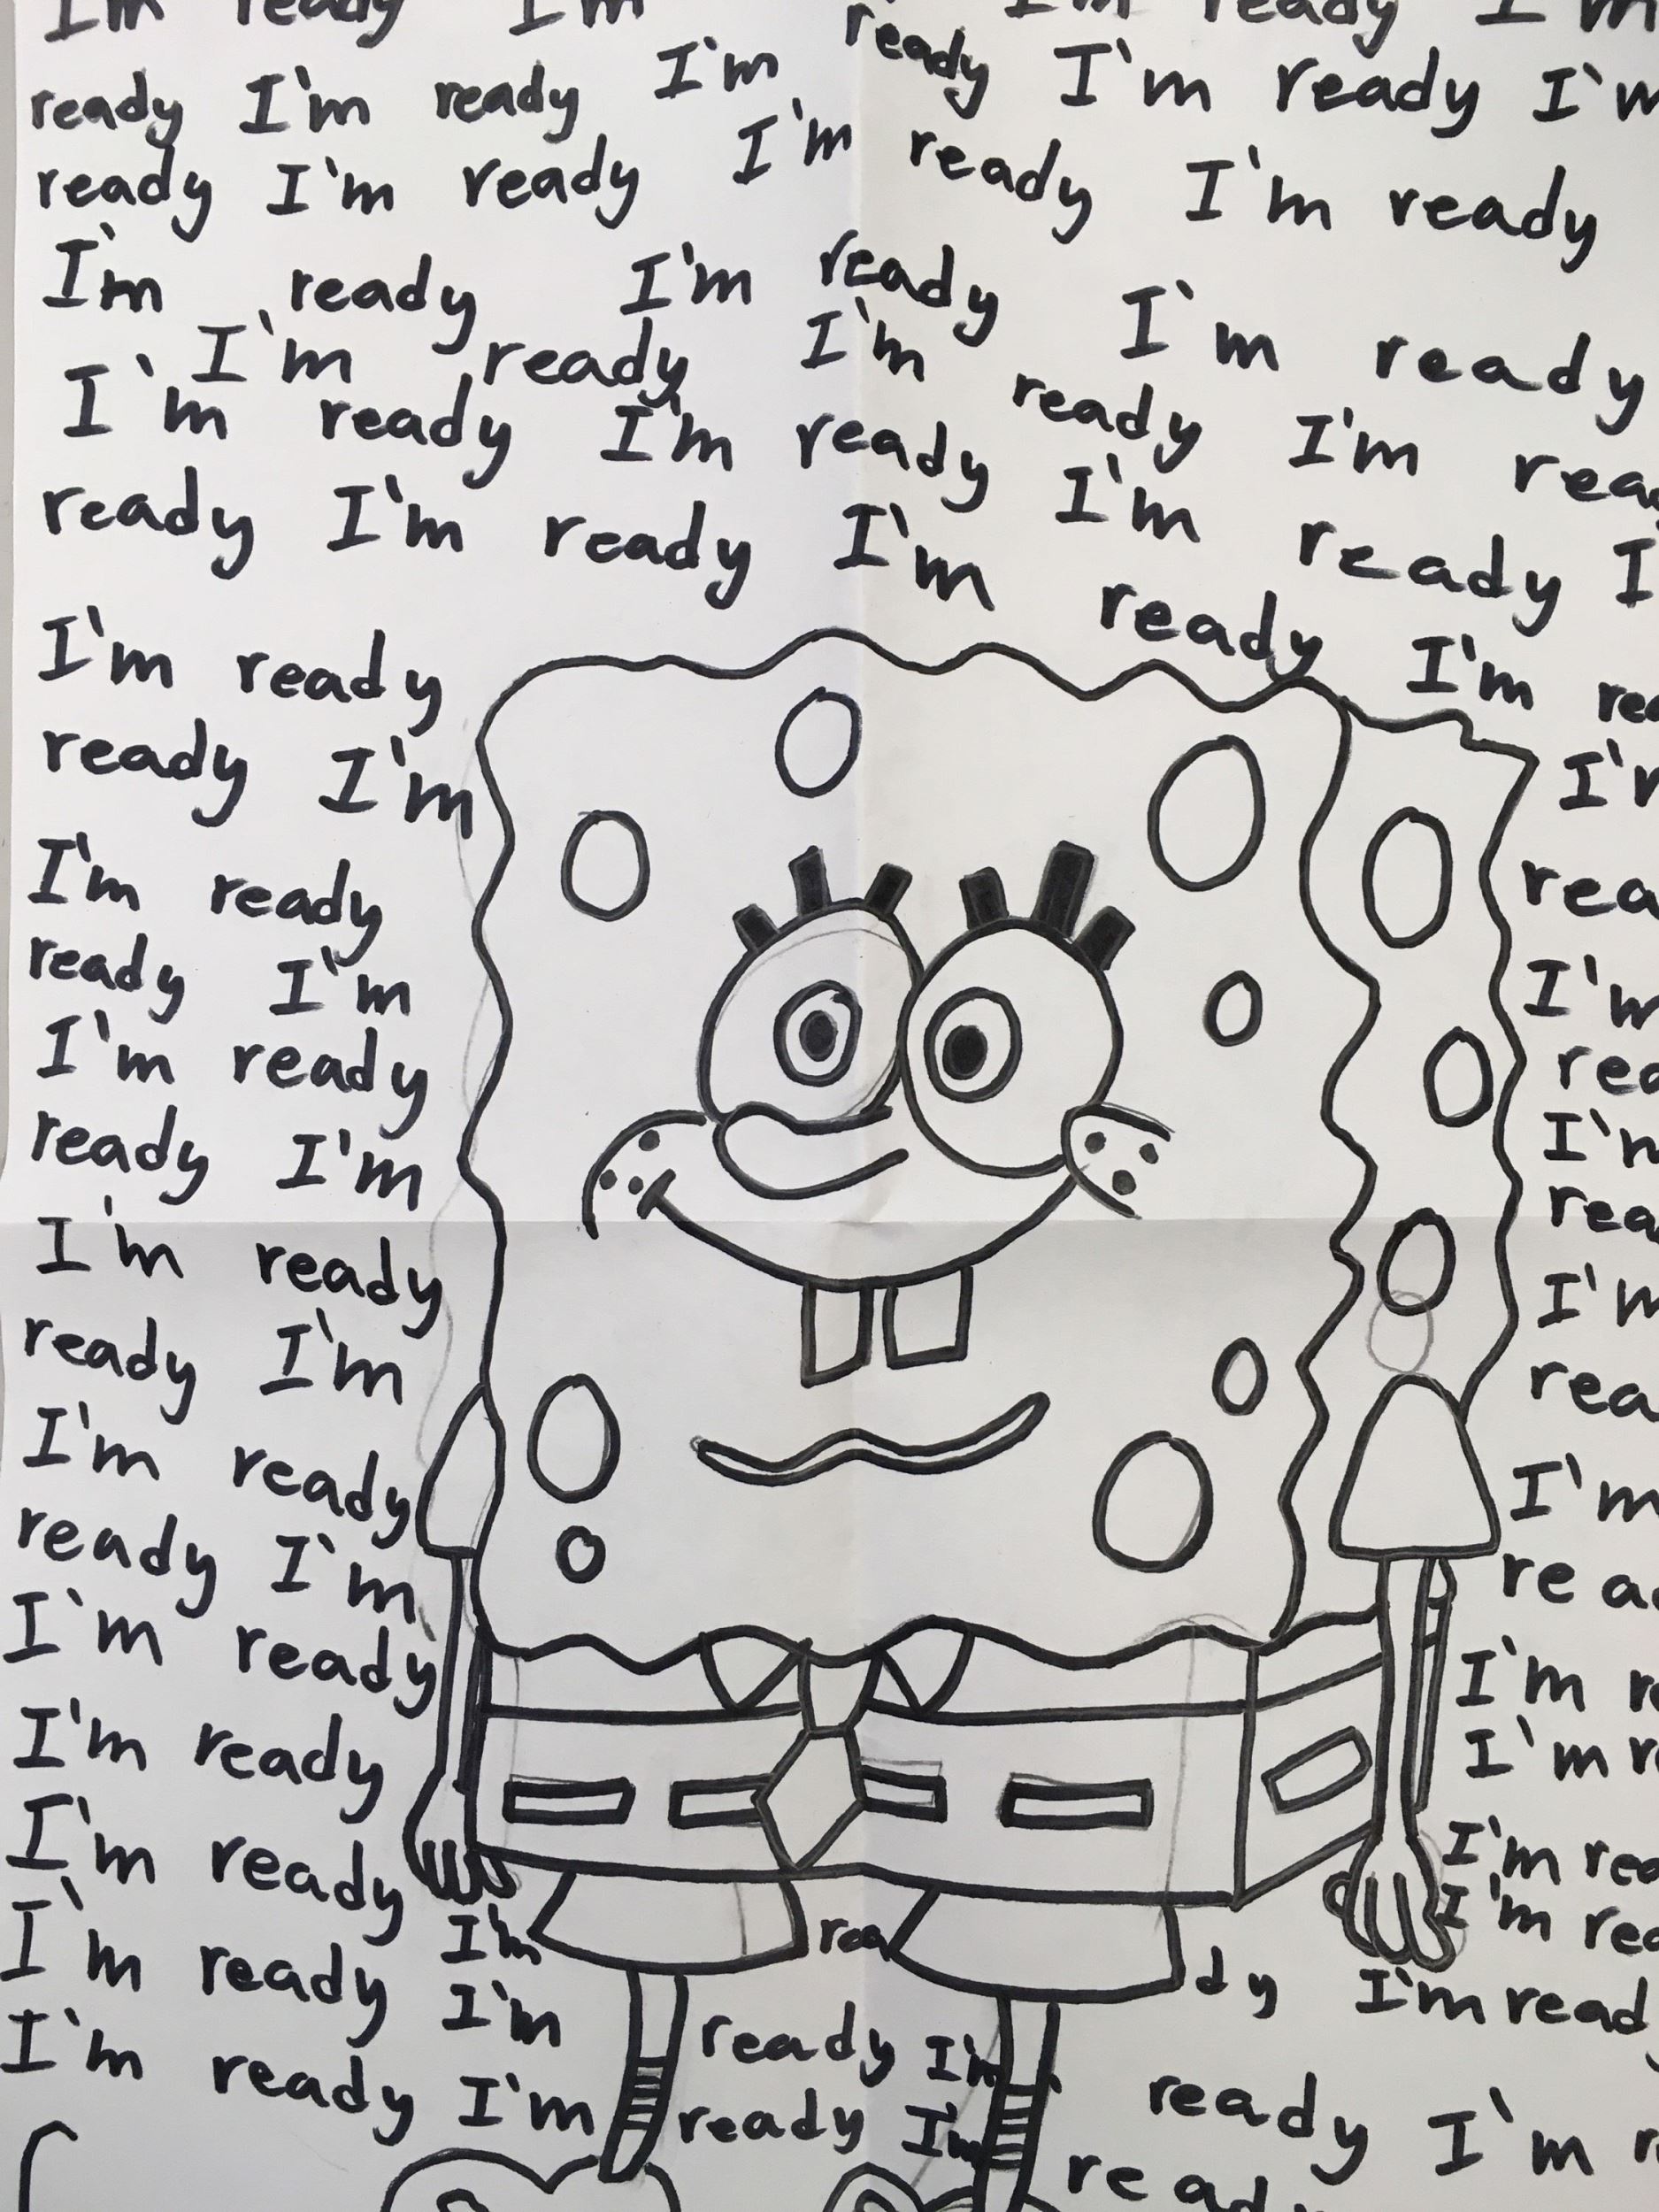 I'm ready I'm ready I'm ready I'm
ready I'm ready I'm ready I'm ready I'm
ready I'm ready I'm ready I'm ready
I'm ready I'm ready I'm ready
I'm ready I'm ready I'm
I'm ready I'm ready I'm ready I
ready I'm ready I'm ready I'm
I'm ready I'm
ready I'm
I'm ready
ready I'm I'm
I'm ready
ready I'm
I'm ready I'm
ready I'm
I'm ready I'm
ready I'm
I'm ready I'm
I'm ready I'm
I'm ready I'm
I'm ready I'm ready I'm
I'm ready I'm ready I'm ready
I'm ready I'm ready I'm ready I'm
ready